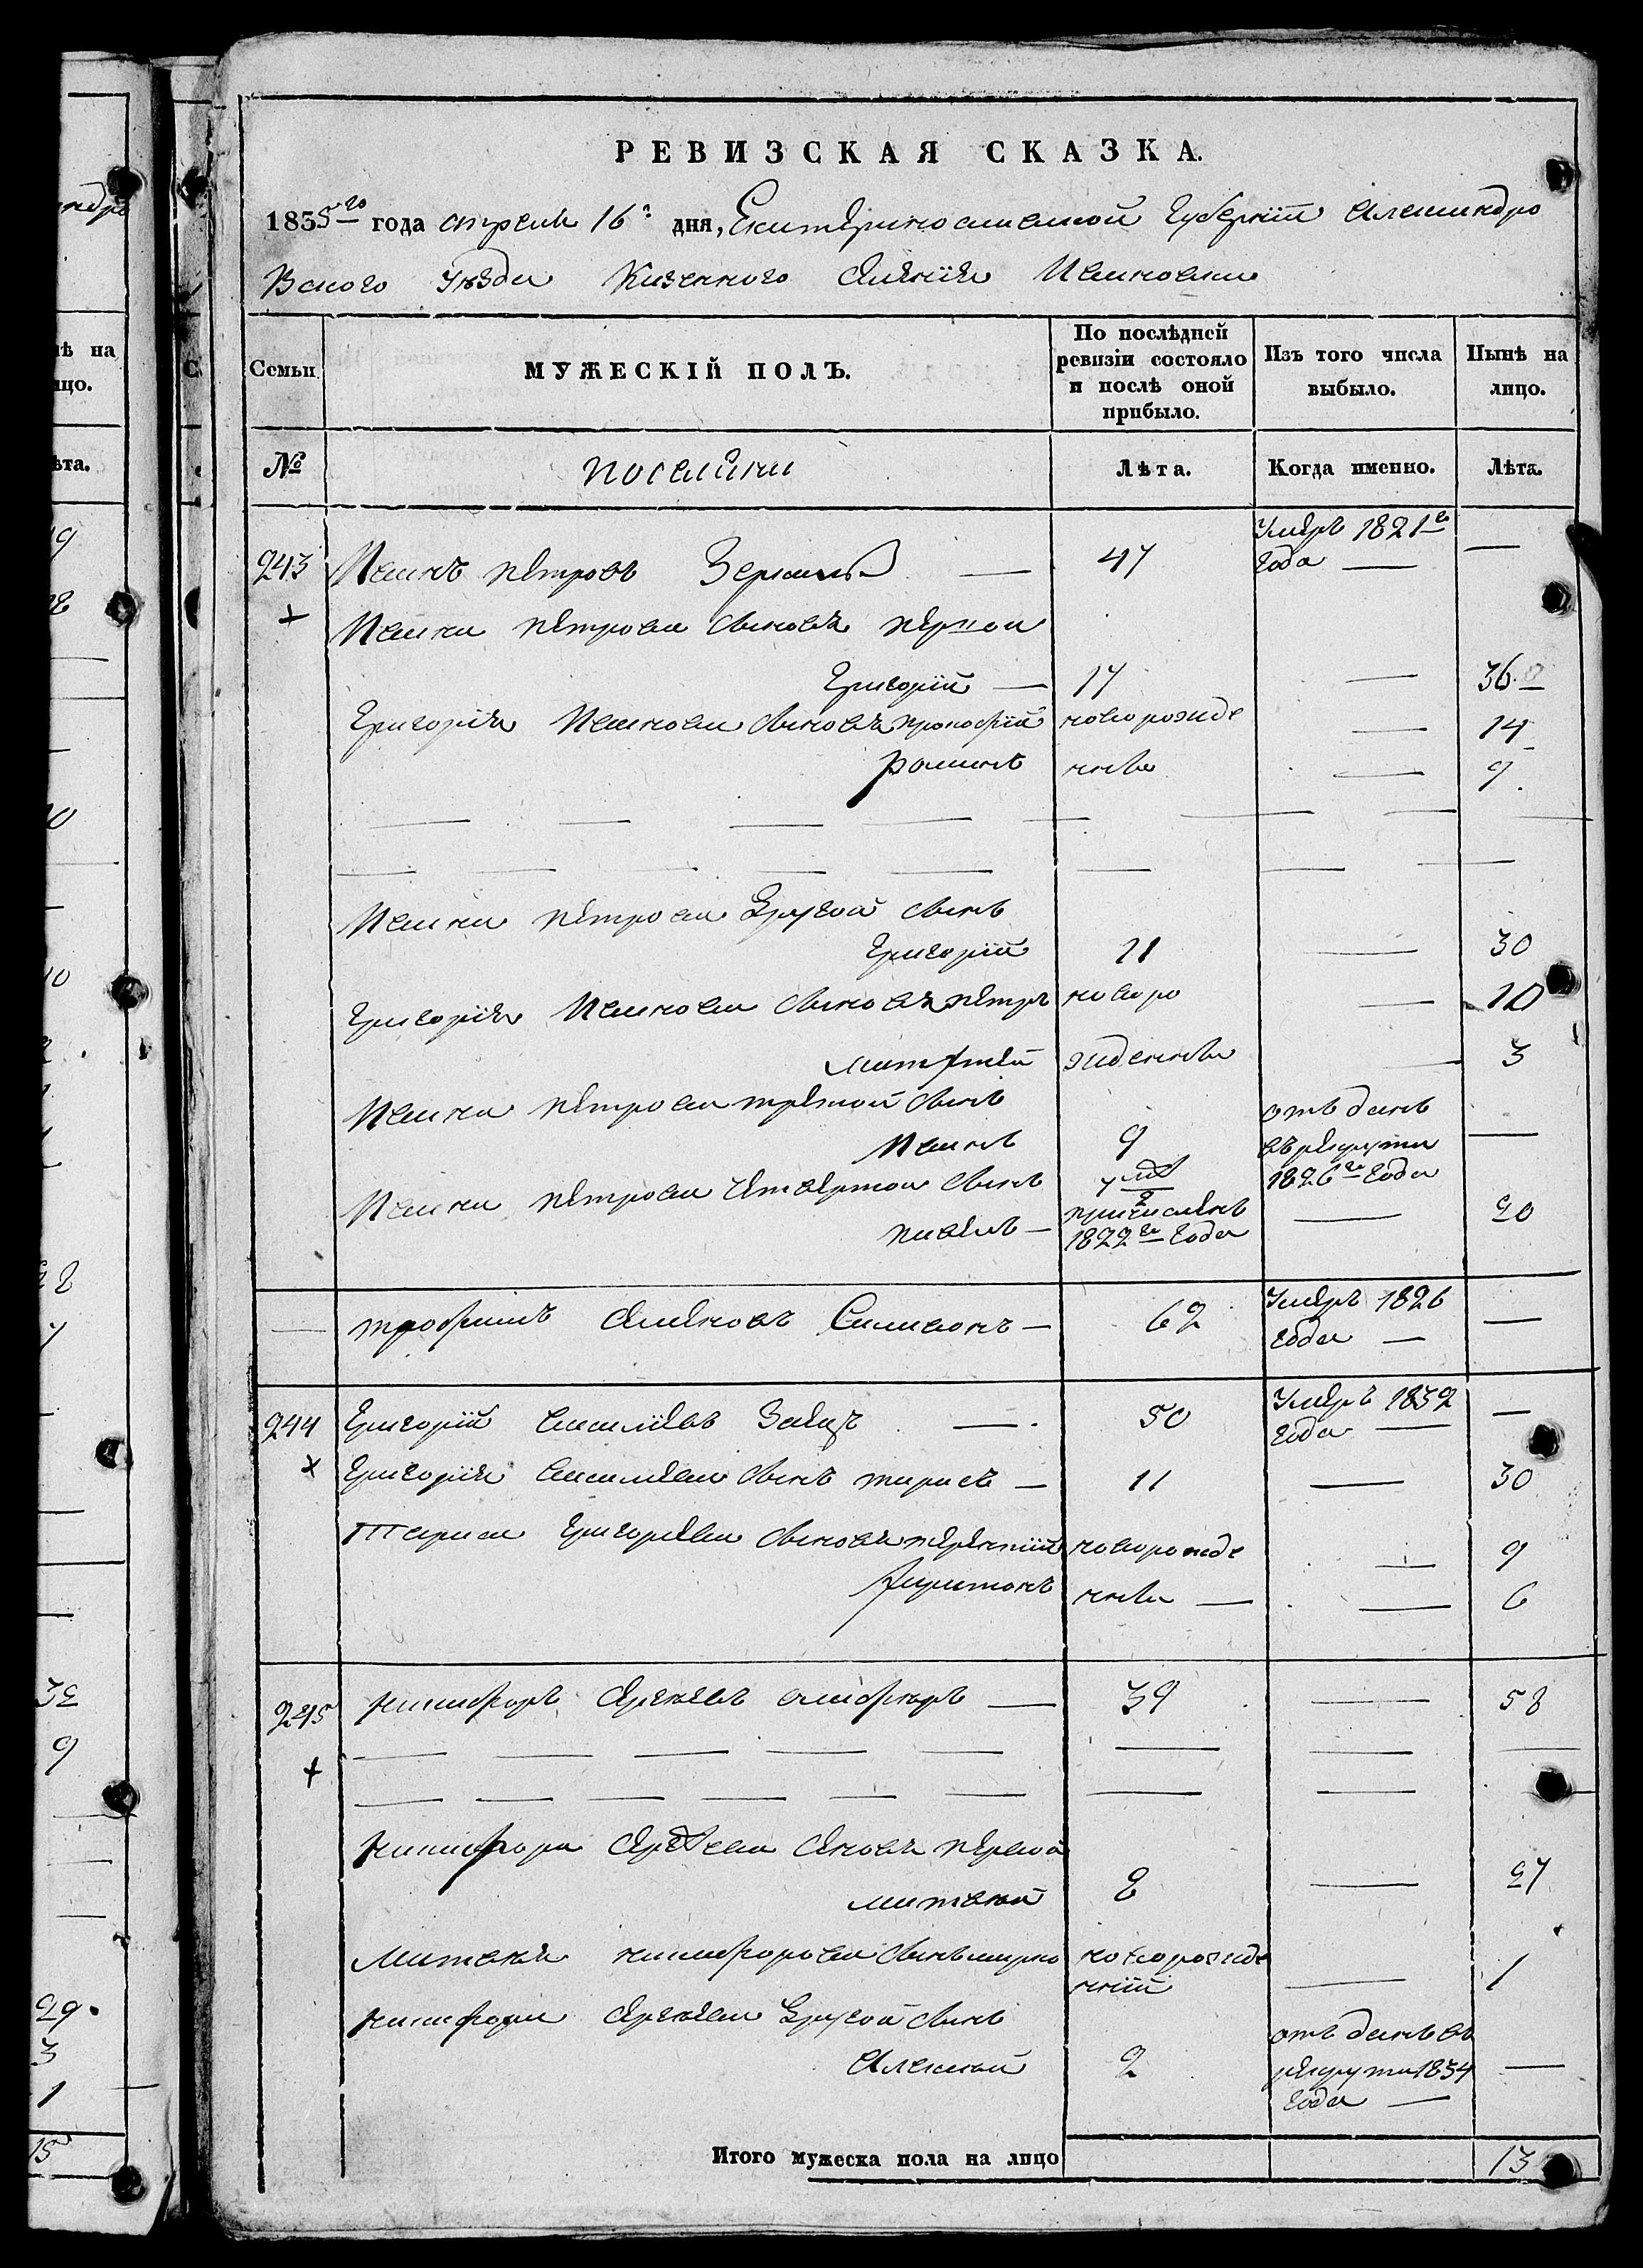 РЕВИЗСКАЯ СКАЗКА.
1835го года апреля 16го дня, Екатеринославской Губернiи Александро
Вского Уѣзда Казенного Селенiя Ивановки
Семьи
МУЖЕСКIЙ ПОЛЪ.
По послѣдней ревизiи состояло и послѣ оной прибыло.
Изъ того числа выбыло.
Нынѣ на лицо.
№
Лѣта.
Когда именно.
Лѣта.
243 Иванъ Петровъ — 47 Умеръ 1821го года — —
Ивана Петрова сыновья первой
Григорiй — 17 — 36
Григорiя Иванова сыновья Прокофiй новорожде — 14
Романъ нные — 9
Ивана Петрова Другой сынъ
Григорiй 11 — 30
Григорiя Иванова сыновья Петръ новоро — 10
Митрфей жденные — 3
Ивана Петрова третой сынъ
Иванъ 9 отъ данъ въ рекруты 1826го года —
Ивана Петрова четвертой сынъ
Павелъ — 7 причисленъ 1822го года — 20
— Трофимъ Семеновъ — 62 Умеръ 1826 года — —
244 Григорiй Васильевъ Заяцъ — 50 Умеръ 1832 года — —
Григорiя Васильева сынъ Тарасъ — 11 — 30
Тараса Григорьева сыновья Терентiй новорожде — 9
Харитонъ нные — — 6
245 Никифоръ Сергеевъ — 39 — 58
Никифора Сергеева сыновья первой
Матвей 8 — 27
Матвея Никифорова сынъ Марко новорожде нный — 1
Никифора Сергеева Другой сынъ
Алексей 2 отъ данъ въ рекруты 1834 года — —
Итого мужеска пола на лицо 13